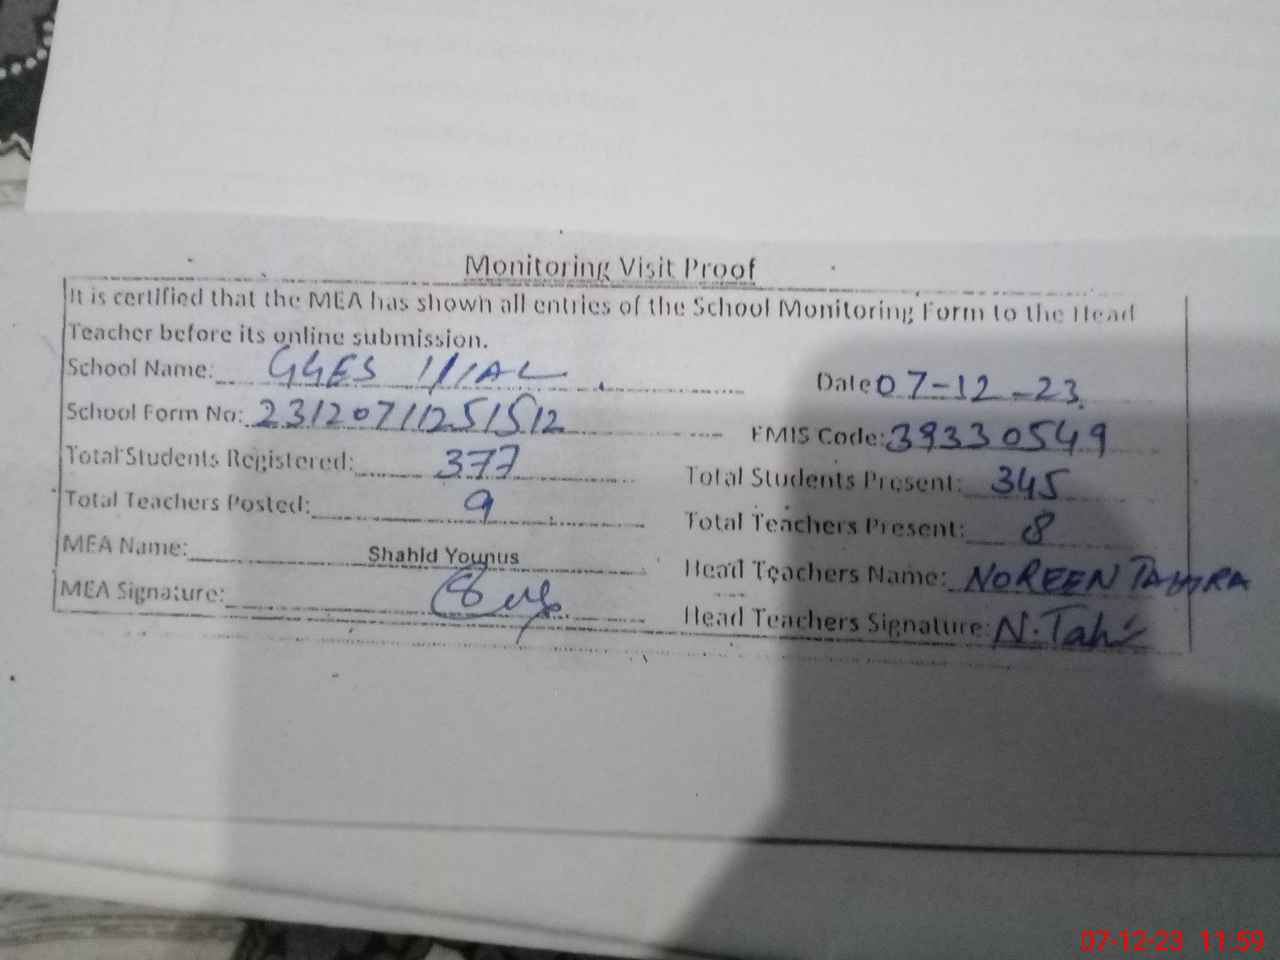 Monitoring Visit Proof
It is certified that the MEA has shown all entries of the School Monitoring Form to the Head
Teacher before its online submission.
School Name: GGES Date 07-12-23
School Form No: 23120711251512 EMIS Code: 39330549
Total Students Registered: 377 Total Students Present: 345
Total Teachers Posted: 9 Total Teachers Present: 8
MEA Name: Shahid Younus Head Teachers Name: NOREEN TAHIRA
MEA Signature: Head Teachers Signature: N. Tahir
07-12-23 11:59